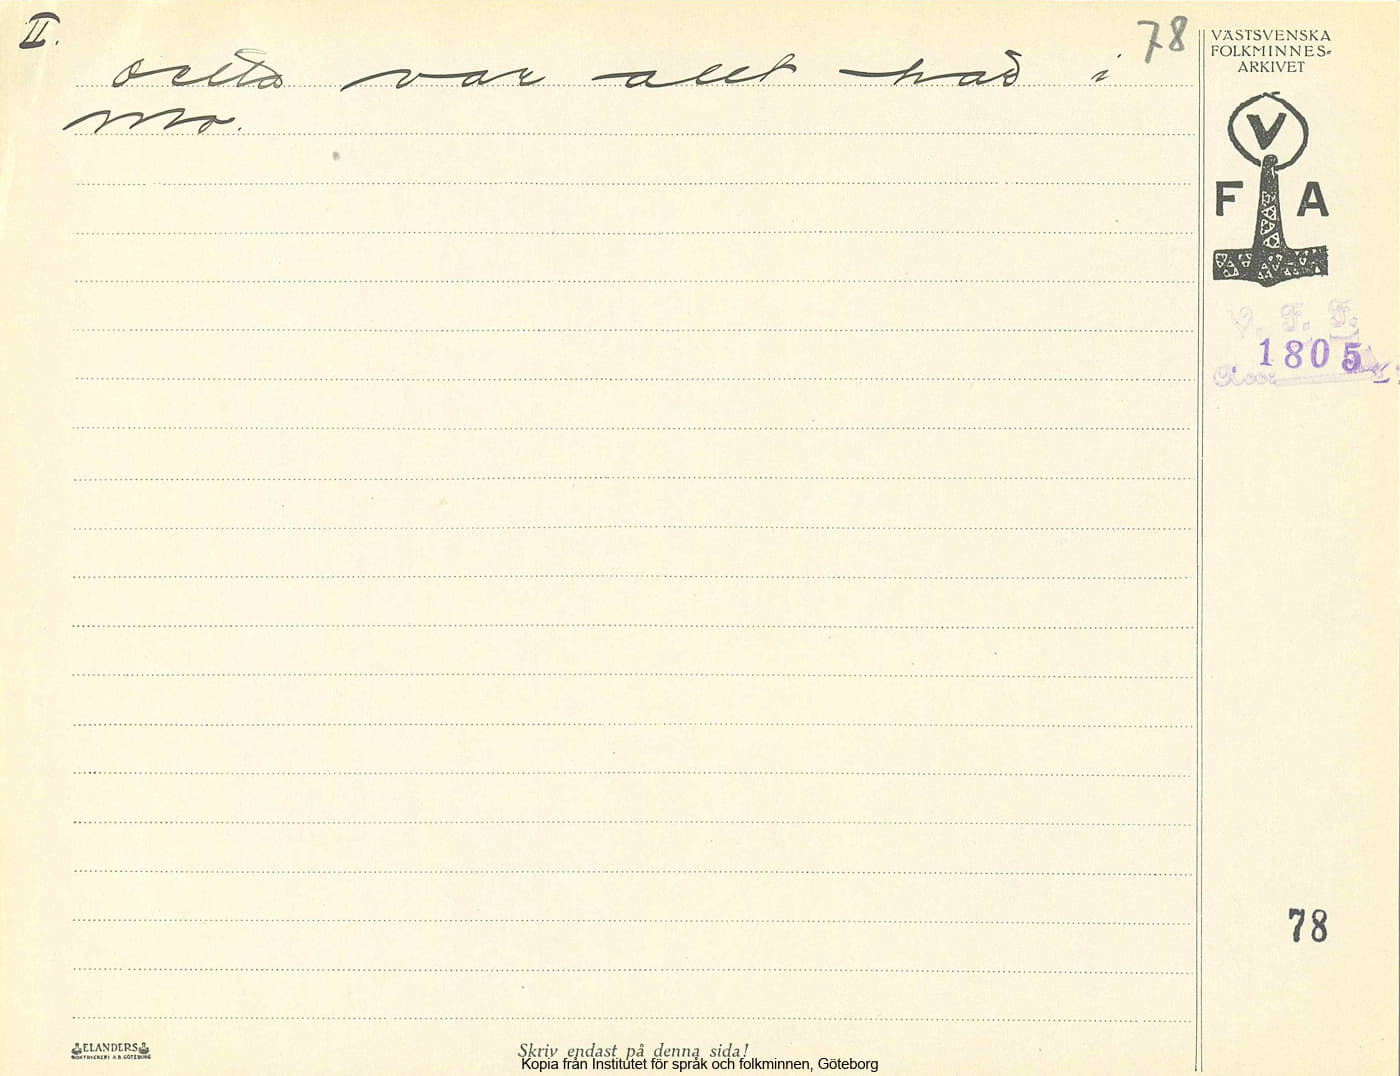 II.
78
VÄSTSVENSKA
FOLKMINNES-
ARKIVET
var allt i
Mo.
V
F A
V. F. F.
1805
78
ELANDERS
BOKTRYCKERI A.B. GÖTEBORG
Skriv endast på denna sida!
Kopia från Institutet för språk och folkminnen, Göteborg